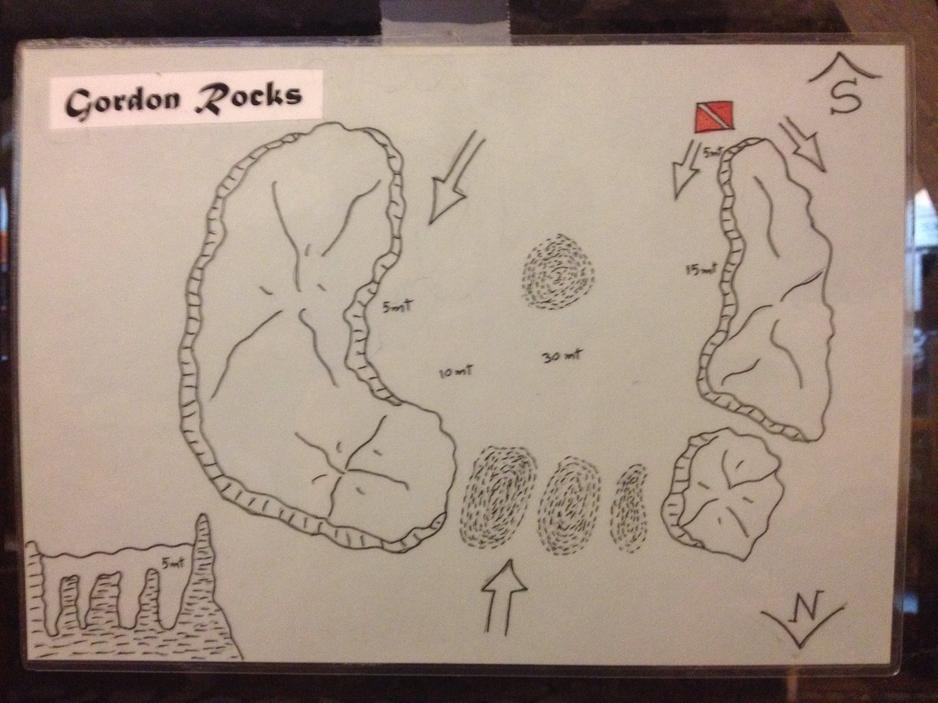 Gordon Rocks
S
5mt
15mt
5mt
30 mt
10 mt
5mt
N